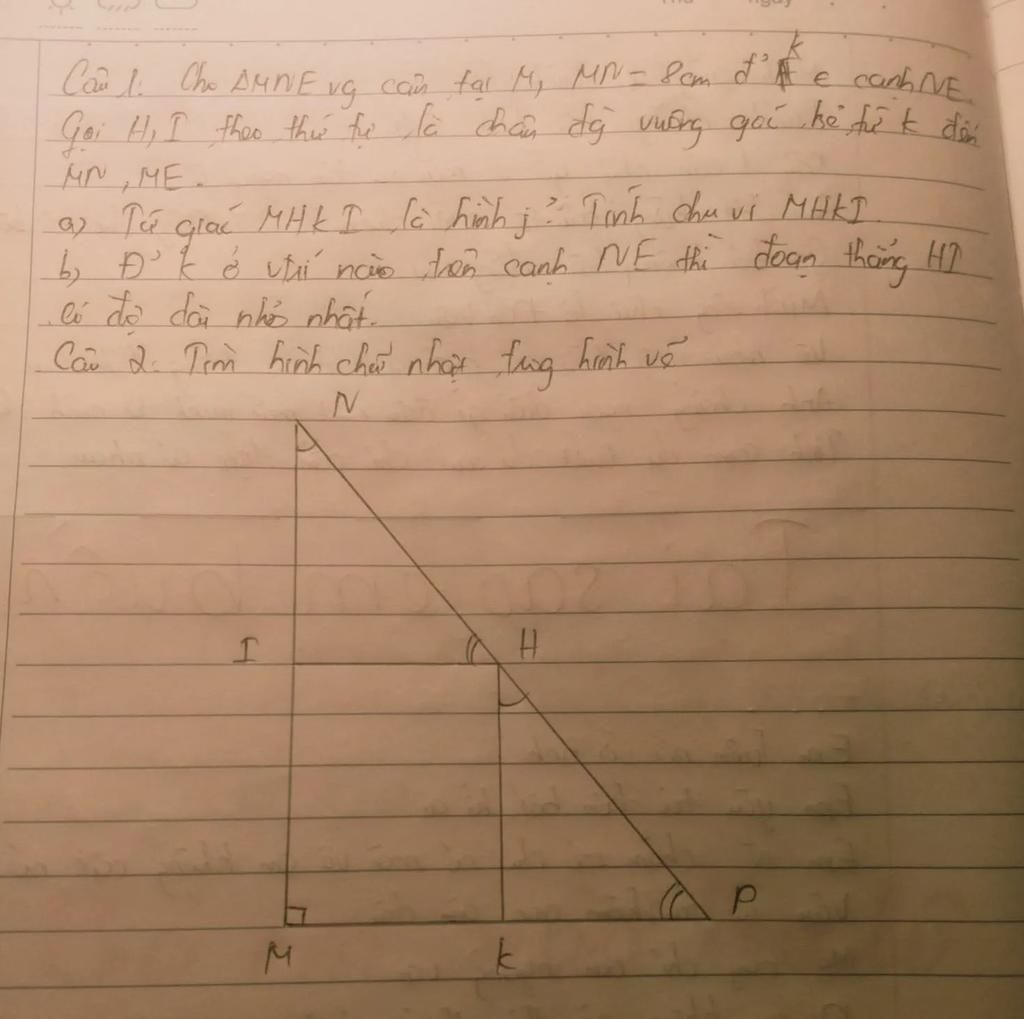 Câu 1: Cho ΔMNE vg cân tại M, MN = 8cm đ' k ∈ cạnh NE.
Gọi H, I theo thứ tự là chân đg vuông góc kẻ từ k đến
MN, ME.
a) Tứ giác MHkI là hình j? Tính chu vi MHkI.
b) Đ' k ở vtrí nào trên cạnh NE thì đoạn thẳng HI
có độ dài nhỏ nhất.
Câu 2: Tìm hình chữ nhật trg hình vẽ
N
I H
P
M k